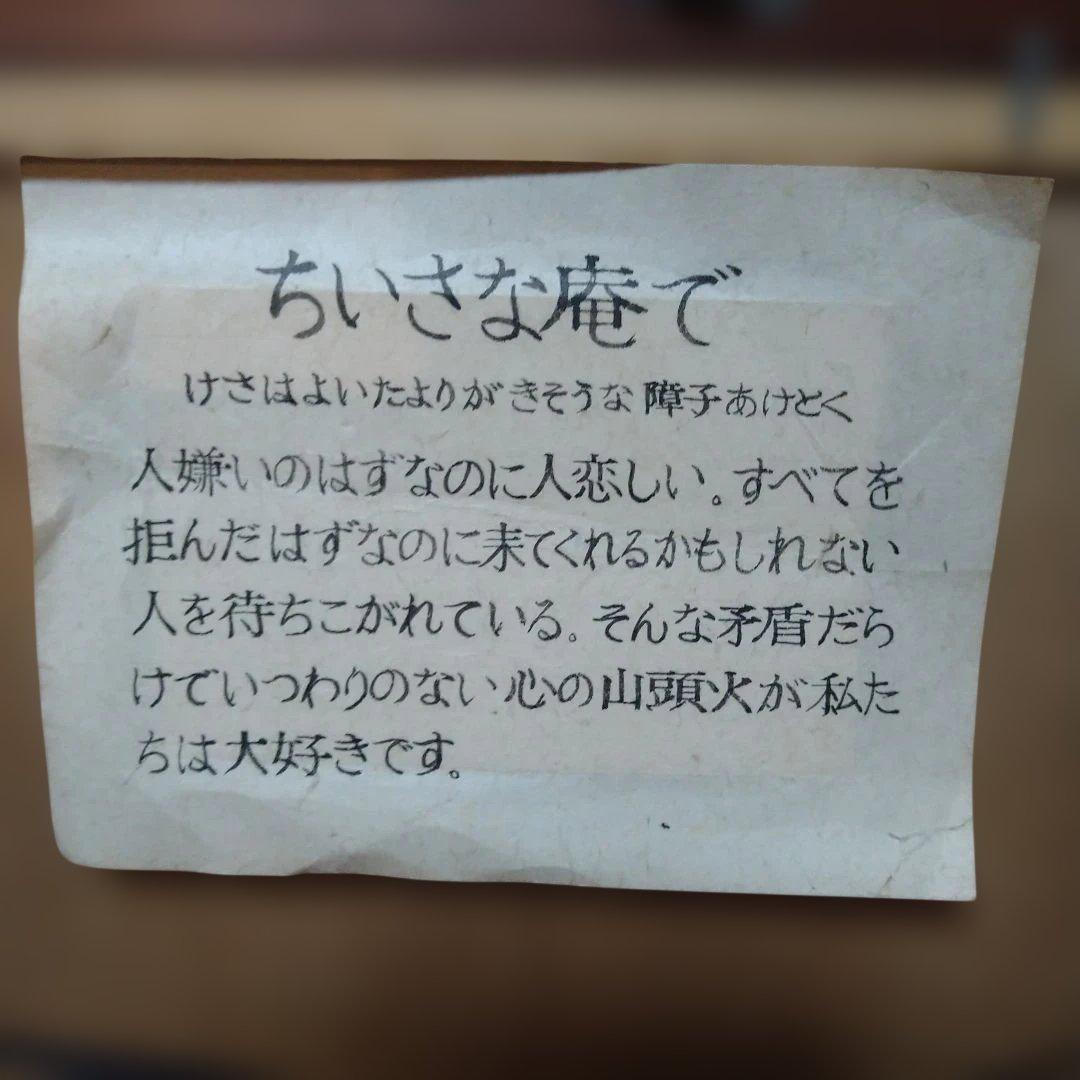 ちいさな庵で
けさはよいたよりがきそうな障子あけとく
人嫌いのはずなのに人恋しい。すべてを
拒んだはずなのに来てくれるかもしれない
人を待ちこがれている。そんな矛盾だら
けでいつわりのない心の山頭火が私た
ちは大好きです。